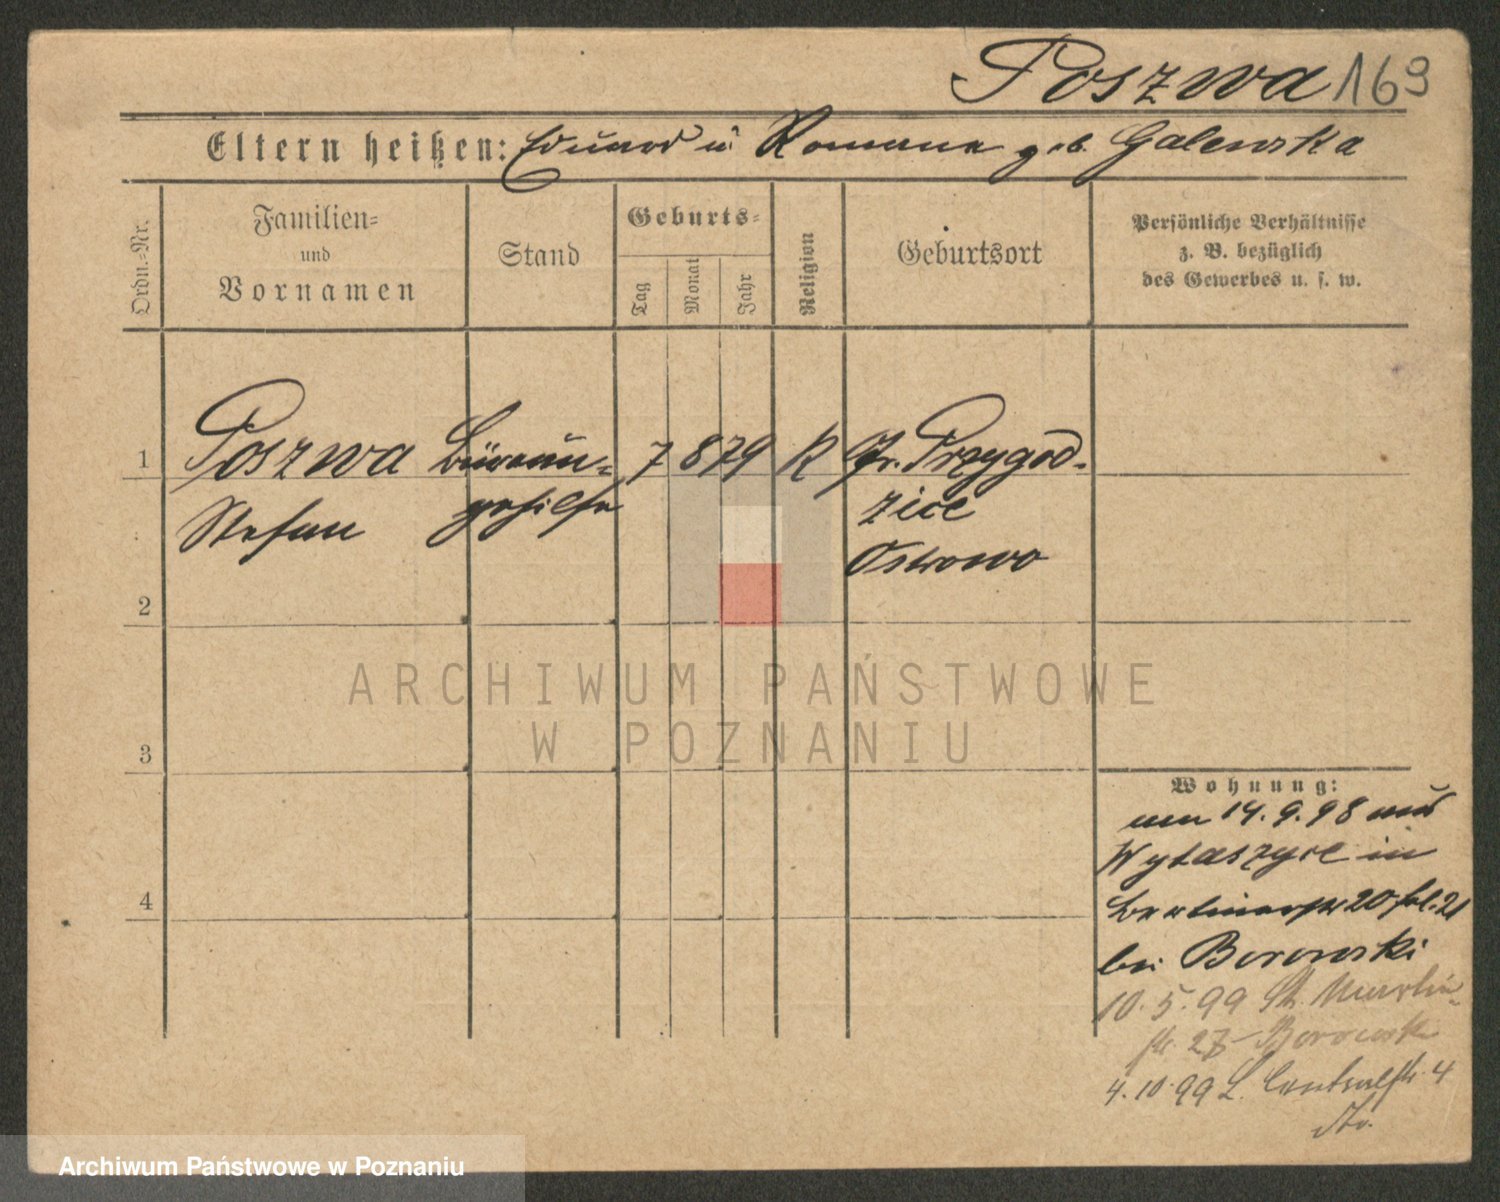 Poszwa 169
Eltern heißen: Eduard u Romana geb. Galewska
Ordn.-Nr.
Familien-
und
Vornamen
Stand
Geburts-
Tag
Monat
Jahr
Religion
Geburtsort
Persönliche Verhältnisse
z. B. bezüglich
des Gewerbes u. s. w.
1 Poszwa Büreau- 7 8 79 K Gr. Przygod-
Stefan gehilfe zice
Ostrowo
2
3
4
Wohnung:
am 14.9.98 aus
Wytaszyce in
Berlinerstr 20
bei Borowski
10.5.99 St. Martin-
str. 27 Borowski
4.10.99 Centralstr. 4
ARCHIWUM PAŃSTWOWE
W POZNANIU
Archiwum Państwowe w Poznaniu